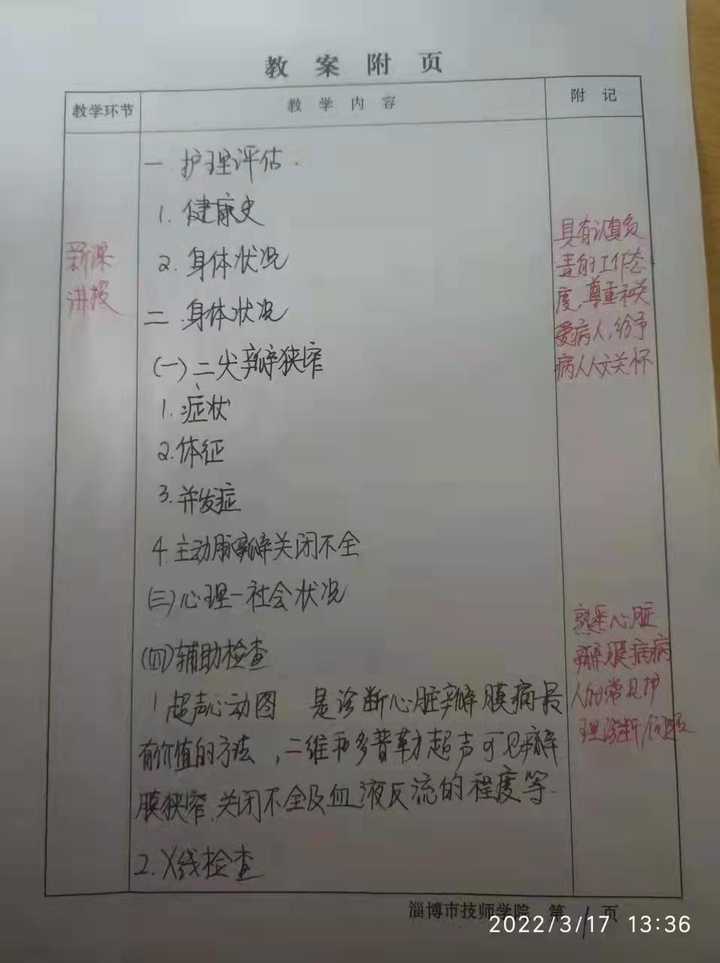 教案附页
教学环节
教学内容
附记
新课
讲授
一 护理评估.
1. 健康史
2. 身体状况
二 身体状况
(一) 二尖瓣狭窄
1. 症状
2. 体征
3. 并发症
4 主动脉瓣关闭不全
(三) 心理-社会状况
(四) 辅助检查
1 超声心动图 是诊断心脏瓣膜病最
有价值的方法,二维和多普勒超声可见瓣
膜狭窄、关闭不全及血液反流的程度等.
2. X线检查
具有认真负
责的工作态
度,尊重和关
爱病人,给予
病人人文关怀
熟悉心脏
瓣膜病病
人的常见护
理诊断/问题
淄博市技师学院 第 1 页
2022/3/17 13:36